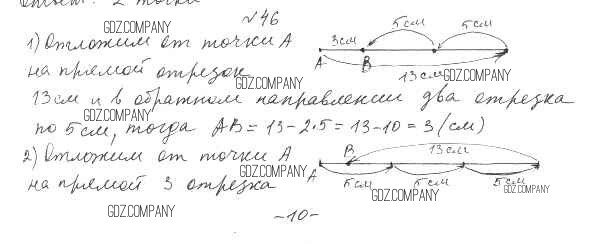 Ответ: 2 точки
№46
GDZ.COMPANY
1) Отложим от точки А
3см 5см 5см
A B 13см
на прямой отрезок
GDZ.COMPANY
GDZ.COMPANY
13см и в обратном направлении два отрезка
GDZ.COMPANY
по 5см, тогда AB = 13-2·5 = 13-10 = 3 (см)
2) Отложим от точки А
GDZ.COMPANY
B 13см
A 5см 5см 5см
на прямой 3 отрезка
GDZ.COMPANY
GDZ.COMPANY
GDZ.COMPANY
-10-